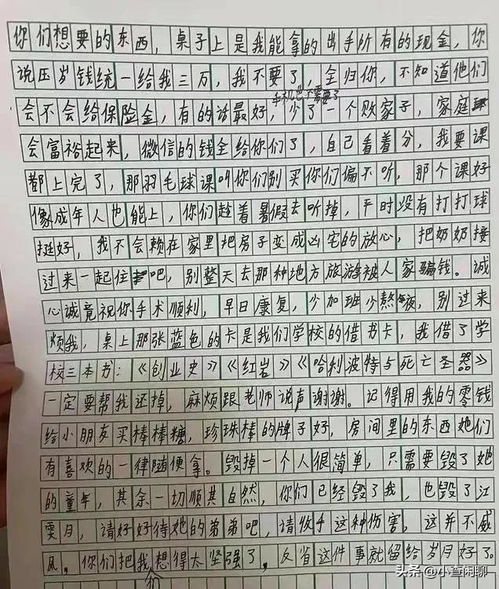 你们想要的东西，桌子上是我能拿的出手所有的现金，你
说压岁钱统一给我三万，我不要了，全归你，不知道他们
手机也不需要了
会不会给保险金，有的话最好，少了一个败家子，家庭
会富裕起来，微信的钱全给你们了，自己看着分，我要课
都上完了，那羽毛球课叫你们别买你们偏不听，那个课好
像成年人也能上，你们趁着暑假去听掉，平时没有打打球
挺好，我不会赖在家里把房子变成凶宅的放心，把奶奶接
过来一起住吧，别整天去那种地方旅游被人家骗钱。诚
心诚竟祝你手术顺利，早日康复，少加班少熬夜，别过来
烦我，桌上那张蓝色的卡是我们学校的借书卡，我借了学
校三本书：《创业史》《红岩》《哈利波特与死亡圣器》
一定要帮我还掉，麻烦跟老师说声谢谢。记得用我的零钱
给小朋友买棒棒糖，珍珠棒的牌子好，房间里的东西她们
有喜欢的一律随便拿。毁掉一个人很简单，只需要毁了她
的童年，其余一切顺其自然，你们已经毁了我，也毁了江
雯月，请好好待她的弟弟吧，请收手这种伤害。这并不威
风。你们把我想得太坚强了，反省这件事就留给岁月好了。
们
头条 @小查闲聊